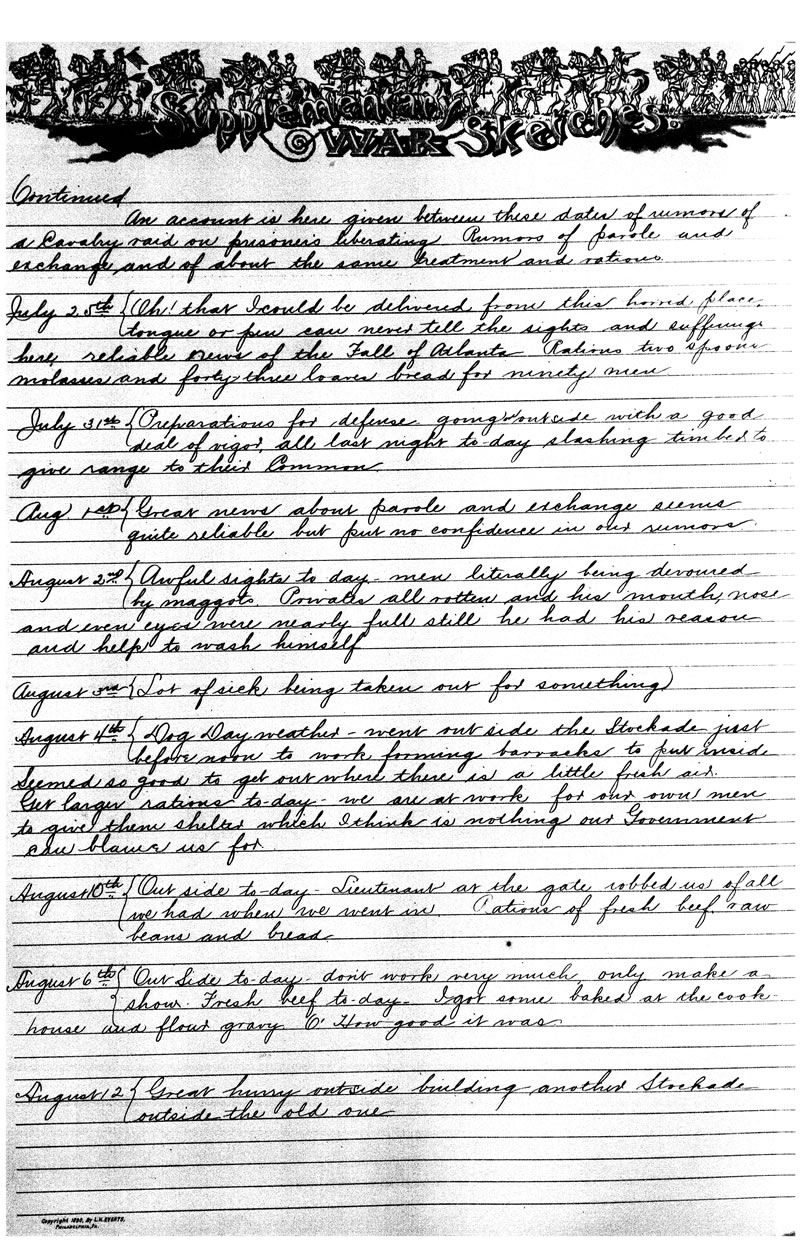 Supplementary
War Sketches.
Continued
An account is here given between these dates of rumors of
a Cavalry raid on prisoners liberating Rumors of parole and
exchange, and of about the same treatment and rations
July 25th { Oh! that I could be delivered from this horred place,
tongue or pen can never tell the sights and sufferings
here, reliable news of the Fall of Atlanta Rations two spoons
molasses and forty-three loaves bread for ninety men
July 31st { Preparations for defense going on outside with a good
deal of vigor, all last night to-day slashing timber to
give range to their Common
Aug 1st { Great news about parole and exchange seems
quite reliable but put no confidence in our rumors.
August 2nd { Awful sights to day - men literally being devoured
by maggots. Privates all rotten and his mouth, nose
and even eyes were nearly full still he had his reason
and help to wash himself
August 3rd { Lot of sick being taken out for something)
August 4th { Dog Day weather - went out side the Stockade just
before noon to work forming barracks to put inside
Seemed so good to get out where there is a little fresh air.
Get larger rations to-day - we are at work for our own men
to give them shelter which I think is nothing our Government
can blame us for.
August 10th { Out side to-day - Lieutenant at the gate robbed us of all
we had when we went in. Rations of fresh beef, raw
beans and bread.
August 6th { Out Side to-day - don't work very much, only make a
show. Fresh beef to-day - I got some baked at the cook-
house and flour gravy O' How good it was.
August 12 { Great hurry outside building another Stockade
outside the old one
Copyright 1890, By L.H. Everts,
Philadelphia, Pa.